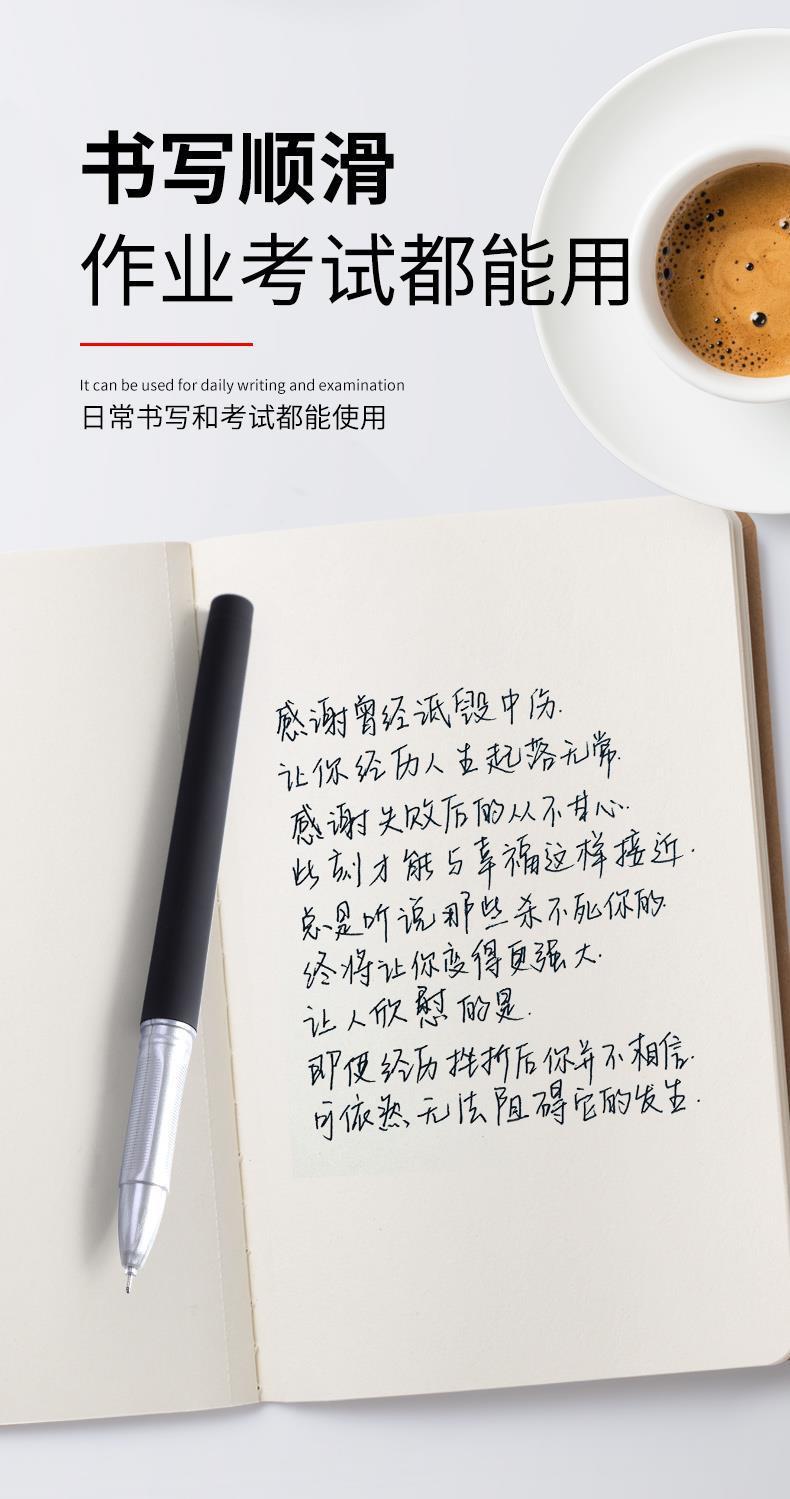 书写顺滑
作业考试都能用
It can be used for daily writing and examination
日常书写和考试都能使用
感谢曾经诋毁中伤.
让你经历人生起落无常.
感谢失败后的从不甘心.
此刻才能与幸福这样接近.
总是听说那些杀不死你的.
终将让你变得更强大.
让人欣慰的是.
即使经历挫折后你并不相信.
可依然无法阻碍它的发生.